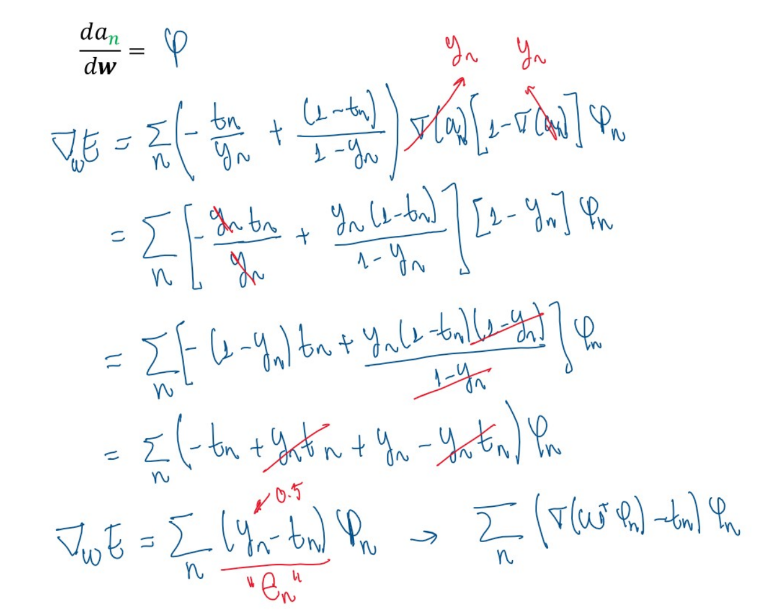 da_n/dw = φ
y_n y_n
∇_w E = Σ_n (- t_n/y_n + (1-t_n)/(1-y_n)) σ(a_n) [1-σ(a_n)] φ_n
= Σ_n [- y_n t_n/y_n + y_n(1-t_n)/(1-y_n)] [1-y_n] φ_n
= Σ_n [-(1-y_n) t_n + y_n(1-t_n)(1-y_n)/(1-y_n)] φ_n
= Σ_n (-t_n + y_n t_n + y_n - y_n t_n) φ_n
0.5
∇_w E = Σ_n (y_n - t_n) φ_n → Σ_n (σ(w^T φ_n) - t_n) φ_n
"e_n"